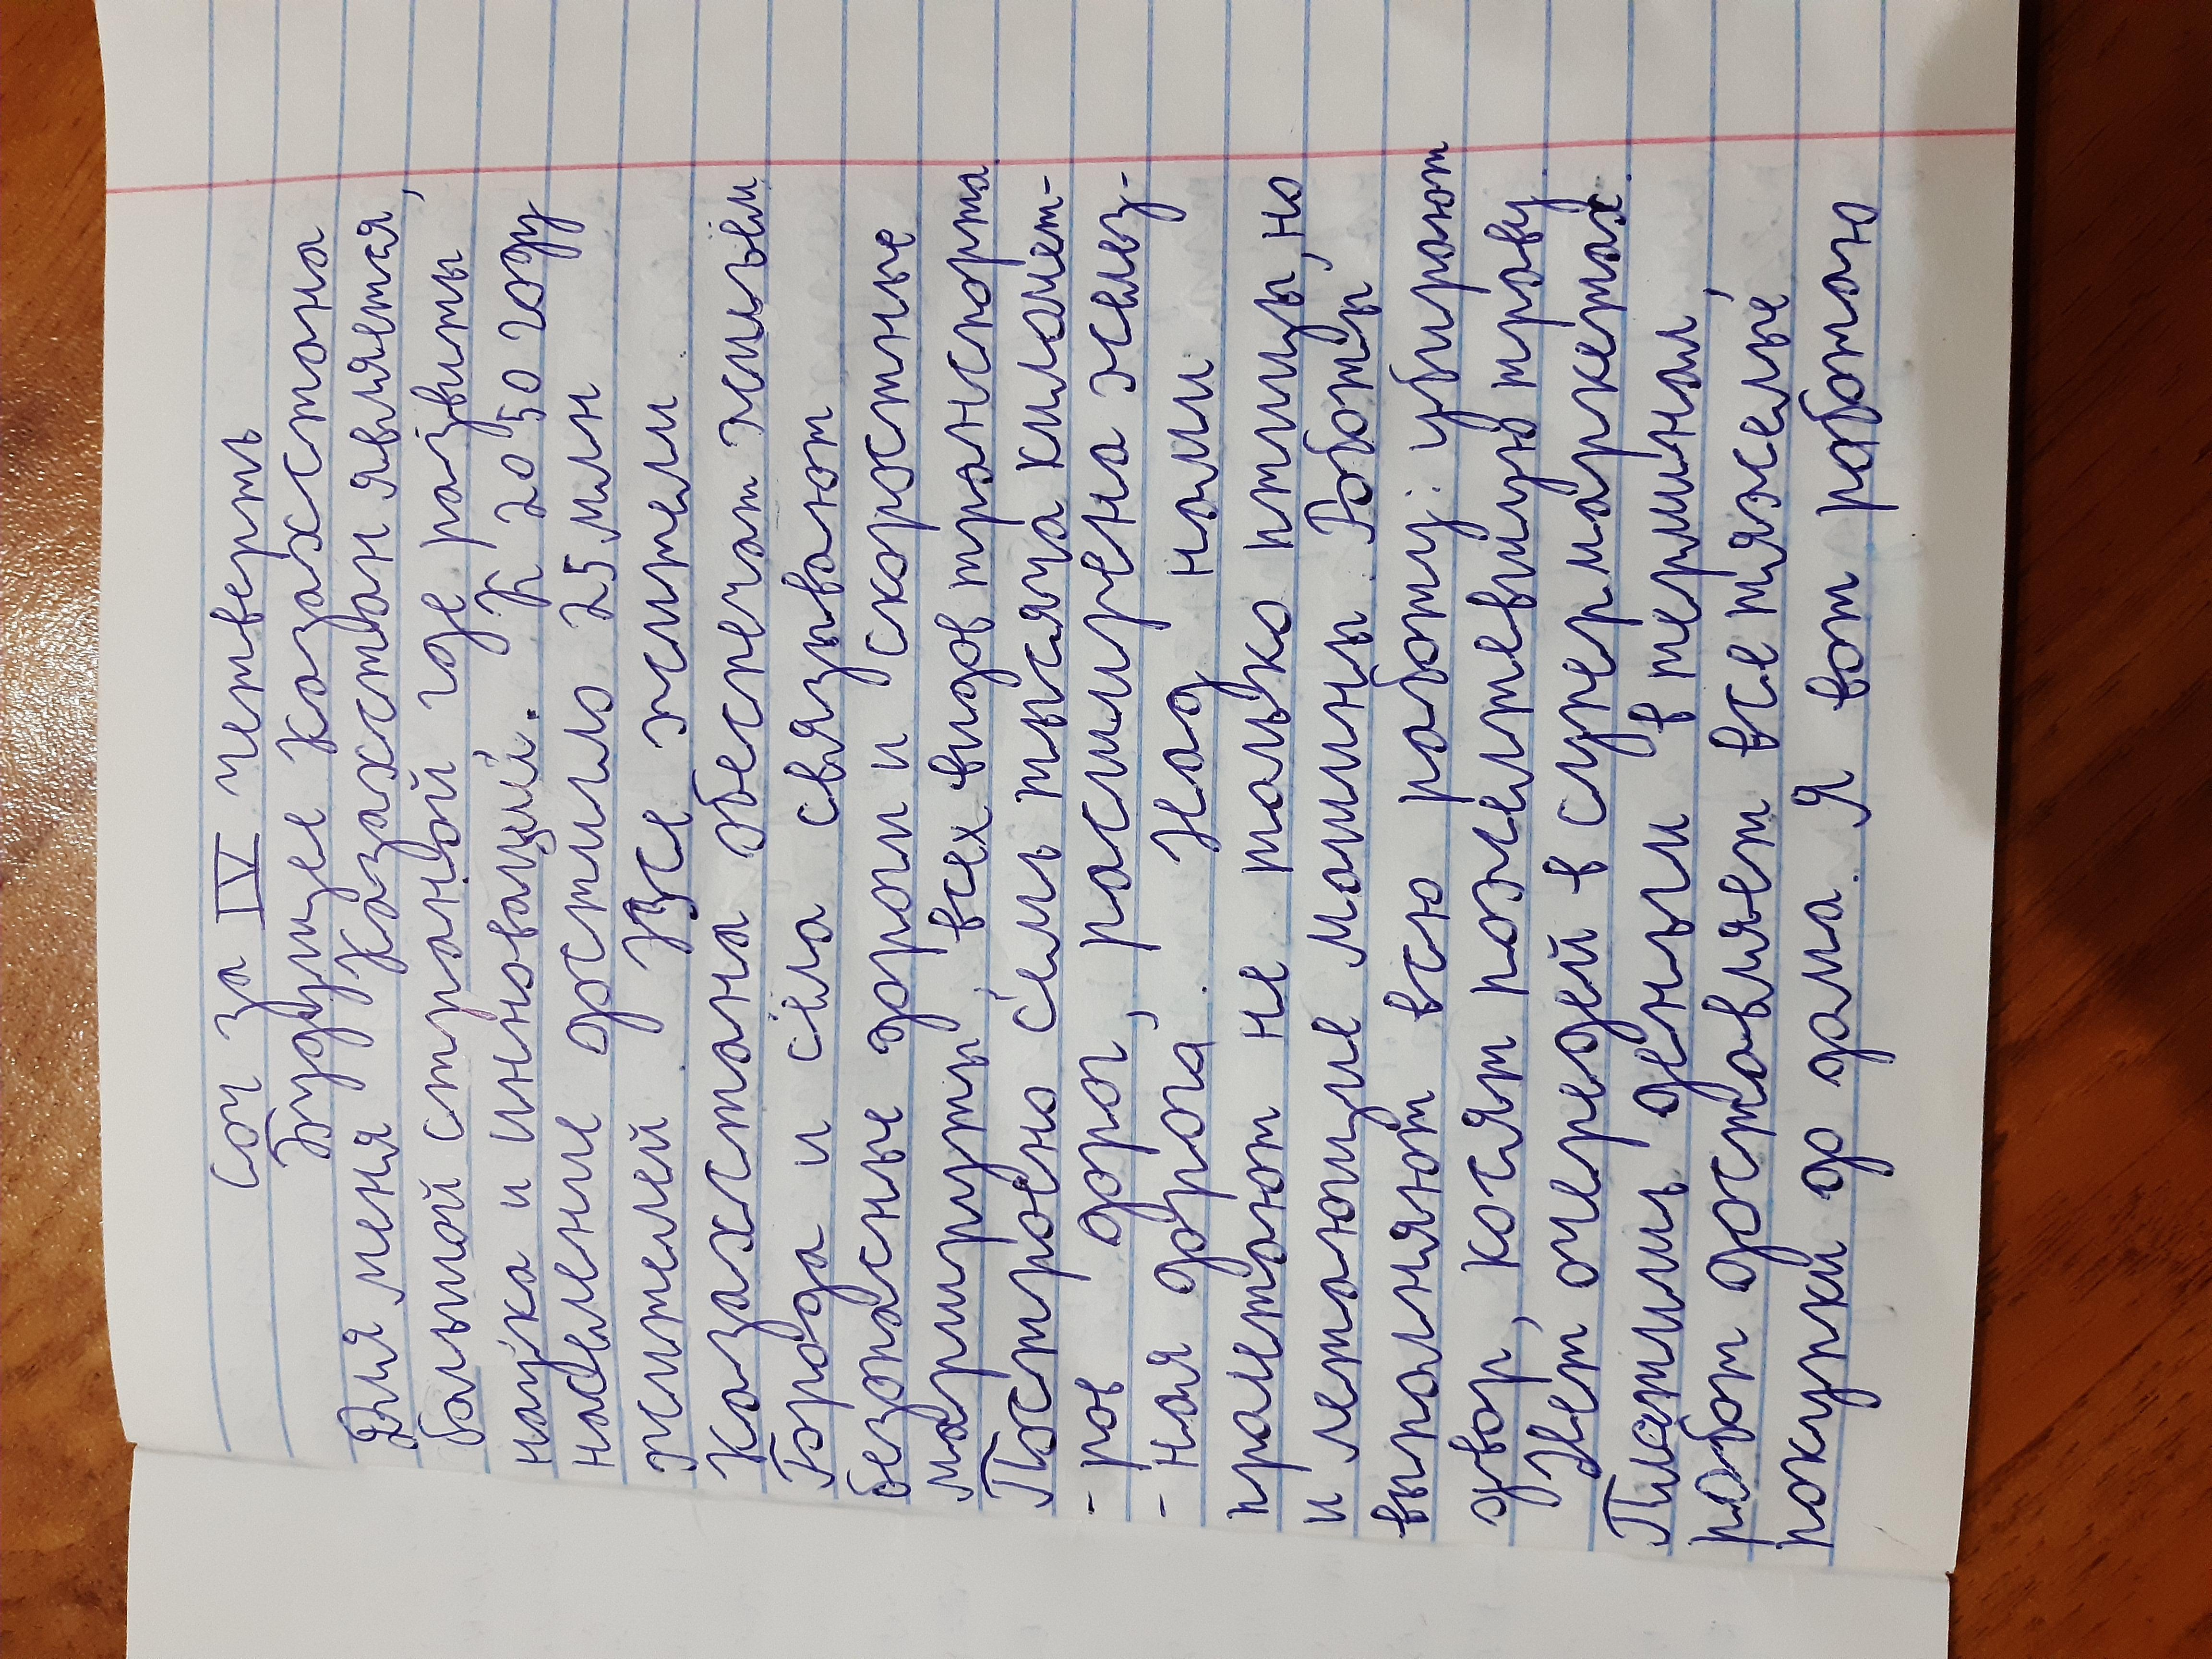 Соч за IV четверть
Будущее Казахстана
Для меня Казахстан является,
большой страной где развиты
наука и инноваций. К 2050 году
население достигло 25 млн
жителей. Все жители
Казахстана обеспечат жильём.
Города и сёла связывают
безопасные дороги и скоростные
маршруты, всех видов транспорта.
Построено семь тысяча километ-
-ров дорог, расширена желез-
-ная дорога. Над нами
пролетают не только птицы, но
и летающие машины. Роботы
выполняют всю работу: убирают
двор, косят пожелтевшую траву.
Нет очередей в супермаркетах.
Платишь деньги в терминал,
робот доставляет все тяжелые
покупки до дома. Я вот работаю